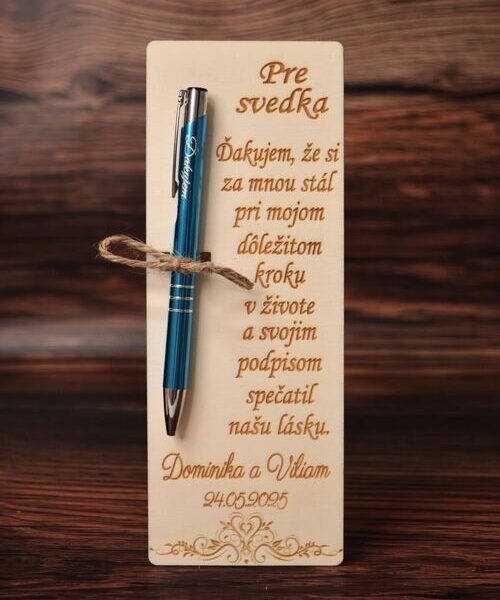 Pre
svedka
Ďakujem, že si
za mnou stál
pri mojom
dôležitom
kroku
v živote
a svojim
podpisom
spečatil
našu lásku.
Dominika a Viliam
24.05.2025
Ďakujem